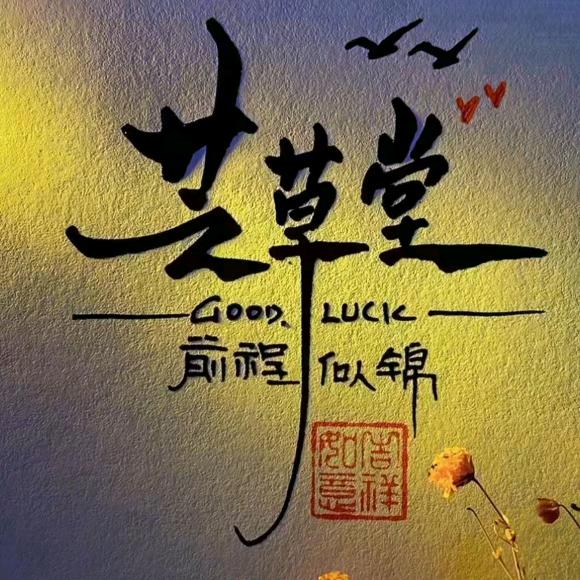 芝草堂
GOOD. LUCK
前程似锦
吉祥
如意